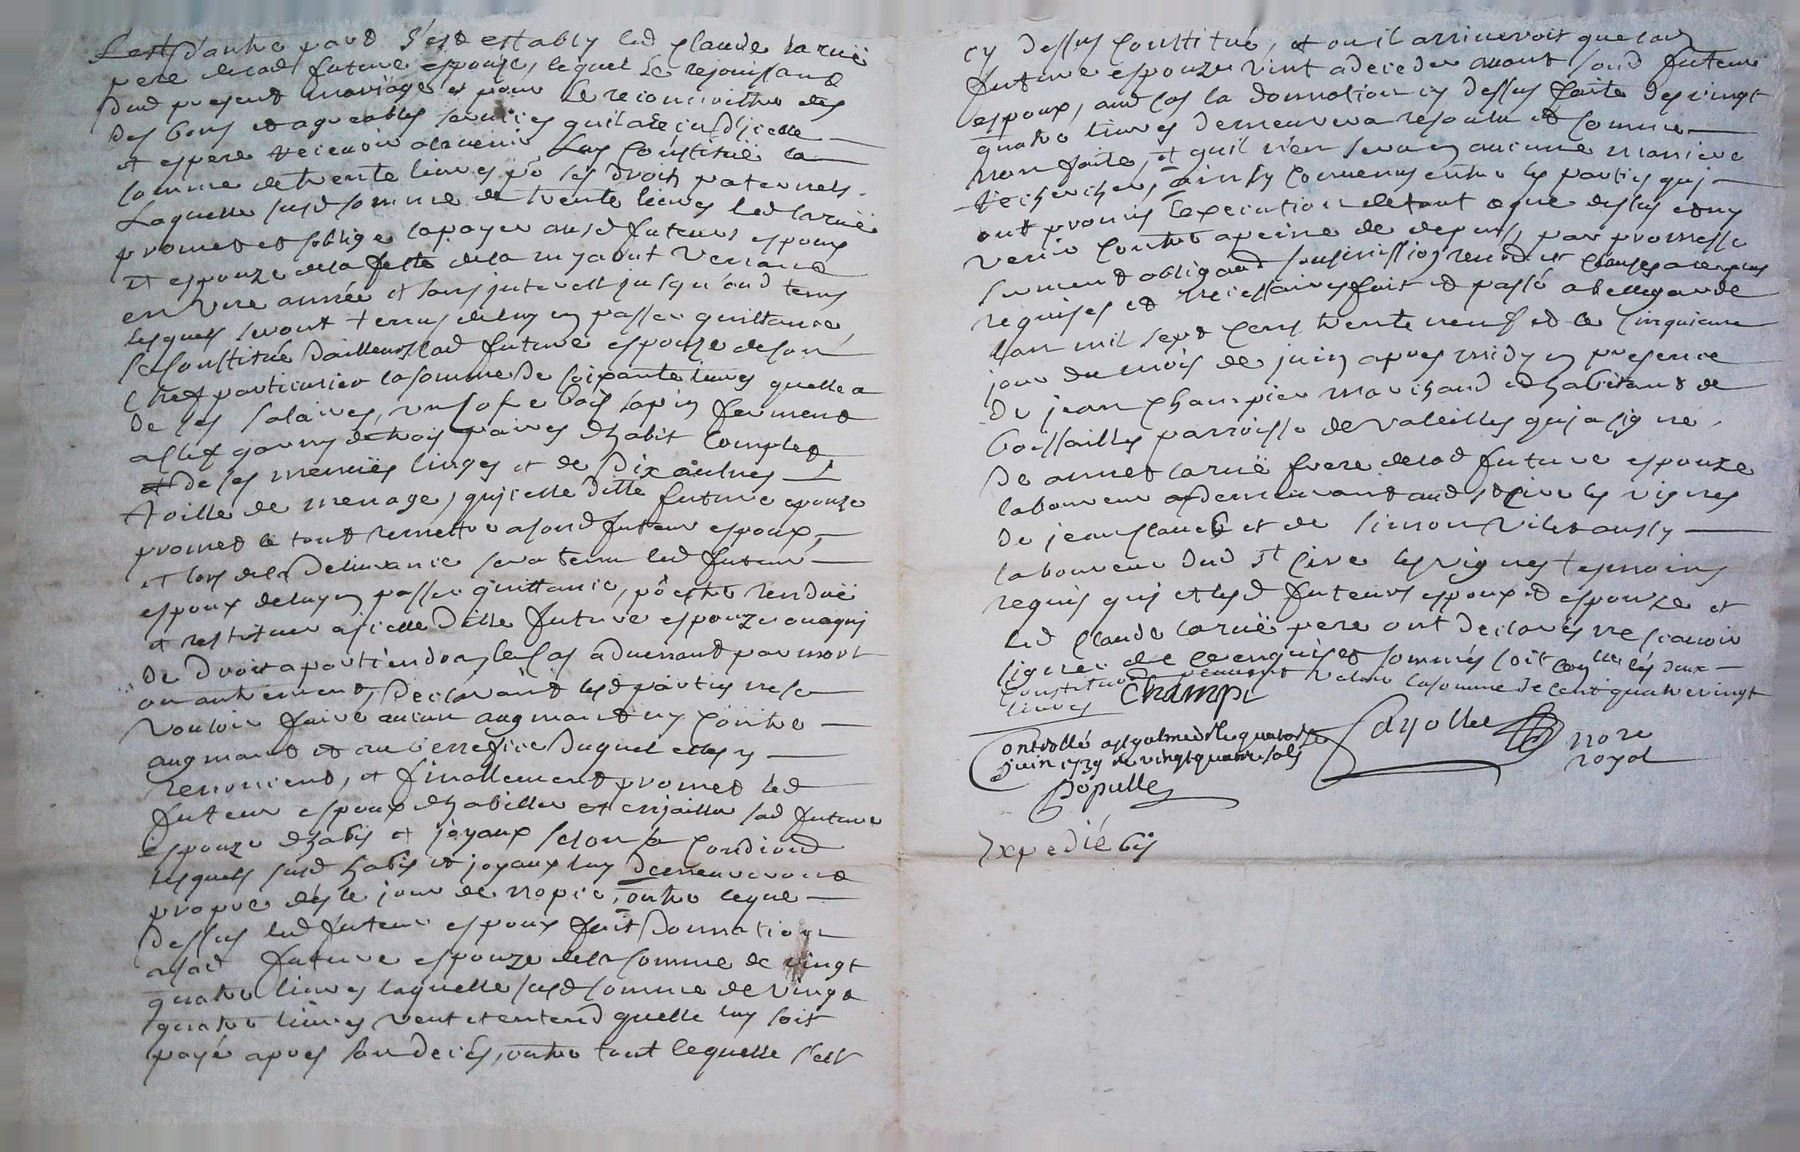 et d'autre part s'est estably led Claude Laruë
pere de lad future espouse, lequel se rejouissant
dud present mariage et pour le reconnoittre des
des bons et agreables services qu'il a reçus d'icelle
et espere recevoir a l'avenir luy constituë la
somme de trente livres pr ses droits paternels.
Laquelle susd somme de trente livres led Laruë
promet et s'oblige la payer ausd futeurs espoux
et espouze de la feste de la my aout venant
en une année et sans interest jusqu'aud tems
lesquels seront tenus de luy en passer quittance,
se constitué d'ailleurs lad future espouze de son
chef particulier la somme de soixante livres quelle a
de ses salaires, un cofre bois sapin fermant
a clef garny de trois paires d'habit complet
de ses menuës linges et de dix aulnes
toille de menage, qu'icelle ditte future epouse
promet le tout remettre a sond futeur espoux,
et lors de la delivrance sera tenu led futeur
espoux de luy en passer quittance, pr estre renduë
et restituee a icelle ditte future espouze ou a qui
de droit apartiendra, le cas advenant par mort
ou autrement, declarant lesd parties ne se
vouloir faire aucun augment ny contre
augment et au benefice duquel elles y
renoncent, et finallement promet led
futeur espoux d'habiller et enjailler sad future
espouze d'habis et joyaux selon sa condiond
lesquels susd habis et joyaux luy demeureront
propre dés le jour de nopce, outre ce que
dessus led futeur espoux fait donnation
a sad future espouze de la somme de vingt
quatre livres laquelle susd somme de vingt
quatre livres veut et entend quelle luy soit
payé apres son decés, outre tout ce quelle s'est
cy dessus constitué, et ou il arriveroit que lad
future espouze vint a deceder avant sond futeur
espoux, aud cas la donnation cy dessus faite des vingt
quatre livres demeurera resolu et comme
non faite, et qu'il n'en sera en aucune maniere
recherchér, ainsy convenus entre les parties qui
ont promis l'execution de tout ce que dessus et ny
venir contre a peine de depens, par promesse
serment obligaond soumission renond et clauses a ce plus
requises et necessaires fait et passé a Bellegarde
l'an mil sept cens trente neuf et le cinquieme
jour du mois de juin apres midy en presence
de jean Champier marchand et habitant de
boissailles parroisse de Valeilles qui a signé,
de annet Laruë frere de lad future espouze
laboureur et demeurant aud st Cire les vignes
de jean Claude et de Simon Viletaussy
laboureur dud st Cire les vignes tesmoins
requis qui et lesd futeurs espoux et espouze et
led Claude Laruë pere ont declarés ne scavoir
signer de ce enquis et sommés soit con lles les deux
constituond venant valoir la somme de cent quatre vingt
livres Champi
Controllé a st galmier le quatorze
juin 1739 r vingt quatre sols
Populle
Cayollet nore
royal
Expedié bis